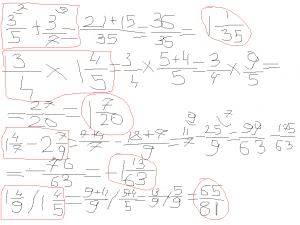 3/5 + 3/7 = 21+15/35 = 36/35 = 1 1/35
3/4 × 1 4/5 = 3/4 × 5+4/5 = 3/4 × 9/5 =
= 27/20 = 1 7/20
1 4/7 - 2 7/9 = 7+4/7 - 18+7/9 = 11/7 25/9 = 99/63 175
= - 76/63 = -1 13/63
1 4/9 / 1 4/5 = 9+4/9 / 5+4/5 = 13/9 / 5/9 = 65/81